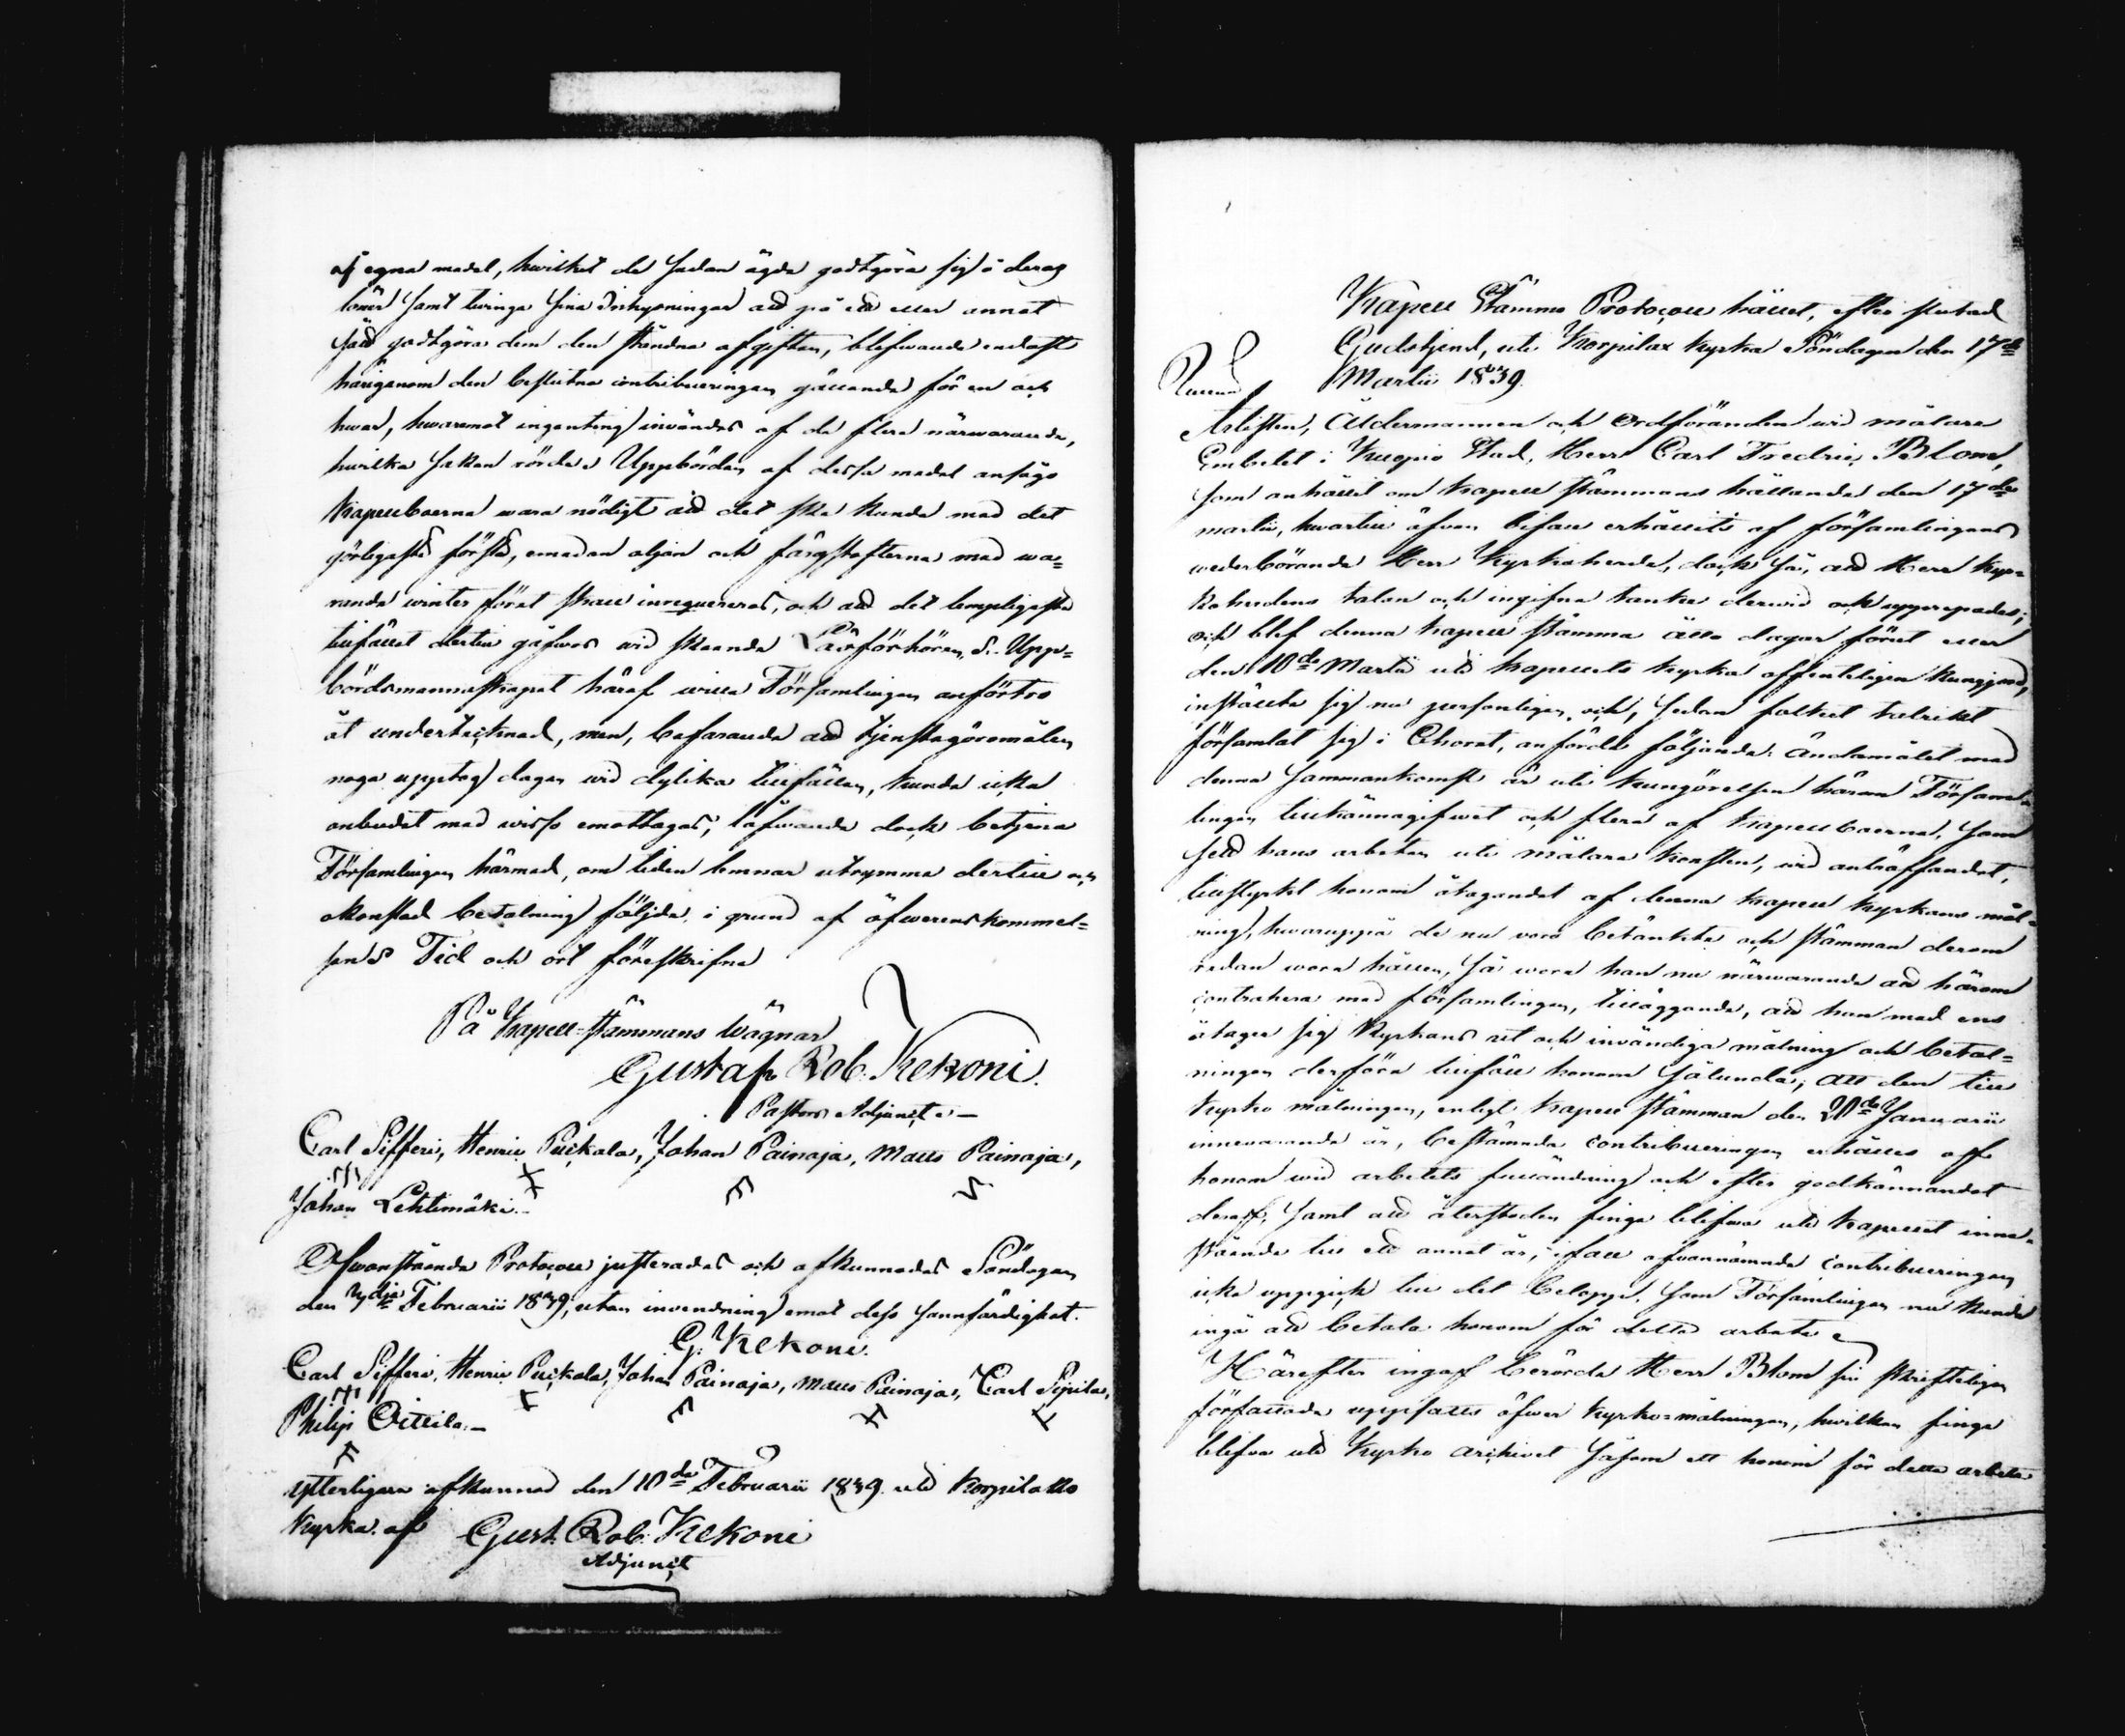 af egna medel, hwilket de sedan ägde godtgöra sig i deras
löner samt twinga sina Inhysningar att på ett eller annat
sätt godtgöra dem den såendna afgiften, blifwande endast
härigenom den beslutna contribueringen gällande för en och
hwar, hwaremot ingenting invändes af de flera närwarande,
hwilka saken rörde. Uppbörden af dessa medel ansågo
Kapellboerna wara nödigt att det ske kunde med det
görligaste första, emedan oljan och färgstofterna med wa=
rande winter föret skall inrequereras, och att det lempligaste
tillfället dertill gåfwes wid skeende Läsförhören, d. Upp=
bördsmannaskapet häraf wille Församlingen anförtro
åt undertecknad, men, befarande att tjenstegöromålen
noga upptog dagen wid dylika tillfällen, kunde icke
anbudet med wisso emottagas; låfwande dock betjena
Församlingen härmed, om tiden lemnar utrymme dertill och
åkonstad betalning följde. i grund af öfwerenskommel=
sen S Tid och ort föreskrifne
På Kapell=stämmans wägnar
Gustaf Rob. Kekoni.
Pastors Adjunct.
Carl Sifferi, Henric Puckala, Johan Painaja, Matts Painaja,
Johan Lehtimäki.
Ofwanstående Protocoll justerades och afkunnades Söndagen
den 3dje Februarii 1839, utan invendning emot dess sannfärdighet.
G. Kekoni.
Carl Sifferi, Henric Puckala, Johan Painaja, Matts Painaja, Carl Sipila,
Philip Oittila.
ytterligare afkunnad den 10de Februarii 1839 uti Korpilax
Kyrka. af Gust. Rob. Kekoni
Adjunct
Kapell Stämmo Protocoll hållet, efter slutad
Gudstjenst, uti Korpilax Kyrka Söndagen den 17de
Martii 1839.
Artisten, Åldermannen och Ordföranden wid målare
Embetet i Kuopio Stad, Herr Carl Fredric Blom,
som anhållit om kapell stämmans hållande den 17de
martii, hwartill äfven befall erhållits af församlingens
wederbörande Herr Kyrkoherde, dock så, att Herr Kyr=
koherdens talan och ingifna tanke derwid ock upprepades;
och blef denna kapell stämma åtta dagar förut eller
den 10de Martii uti kapellets kyrka offenteligen kungjord,
inställte sig nu personligen och, sedan folket talrikt
församlat sig i Choret, anförde följande: Ändamålet med
denna sammankomst är uti kungörelsen härom Försam=
lingen tillkännagifwet och flera af kapellboerna, som
sett hans arbeten uti målare konsten, wid anträffandet,
tillstyrkt honom åtagandet af denna kapell kyrkans mål=
ning, hwaruppå de nu voro betänkte och stämman derom
redan wore hållen, så wore han nu närwarande att härom
contrahera med församlingen, tilläggande, att han med ens
åtager sig Kyrkans ut och invändiga målning och betal=
ningen derföre tillföll honom sålunda, att den till
kyrko målningen, enligt kapell stämman den 20de Januarii
innewarande år, bestämde contribueringen erhålles af
honom wid arbetets fulländning och efter godkännandet
deraf, samt att återstoden finge blifwa uti kapellet inne=
stående till ett annat år, ifall ofvannämnde contribueringen
icke uppgick till det belopp, som Församlingen nu kunde
ingå att betala honom för detta arbete.
Härefter ingaf berörde Herr Blom sin skriftligen
författade uppsatts öfwer kyrko=målningen, hwilken finge
blifva uti Kyrko archivet såsom ett honom för detta arbete